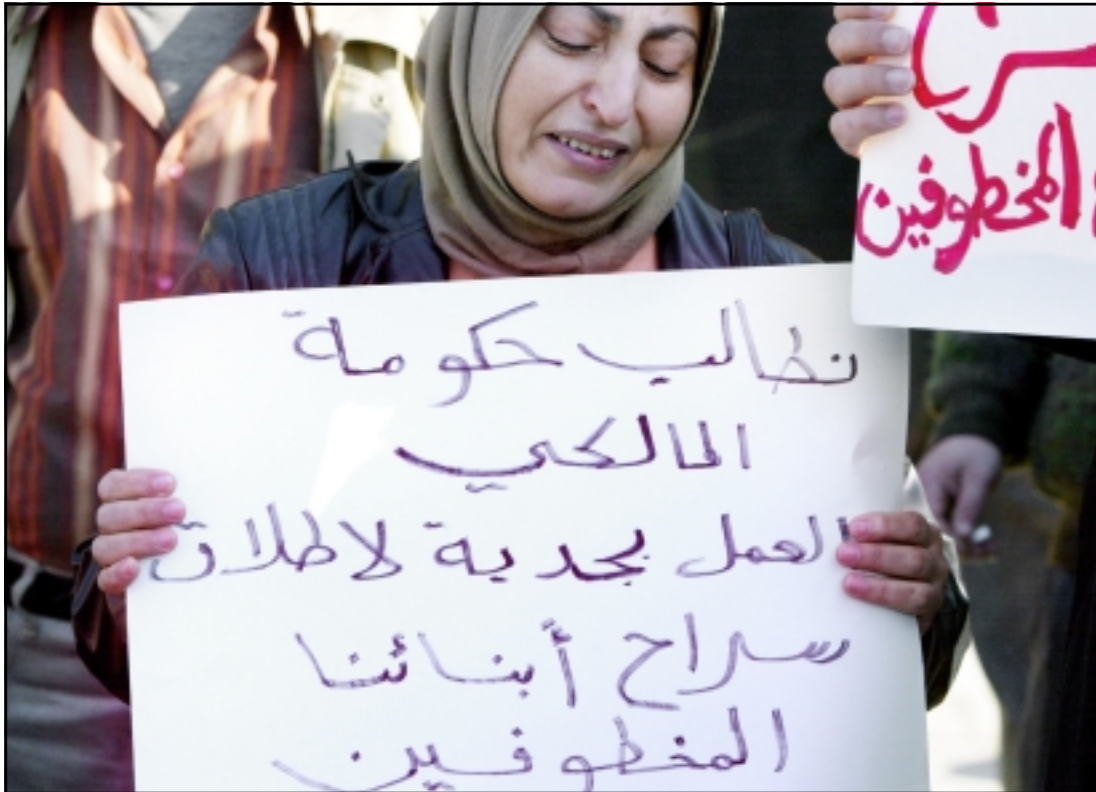 نطالب حكومة
المالكي
العمل بجدية لاطلاق
سراح أبنائنا
المخطوفين
المخطوفين